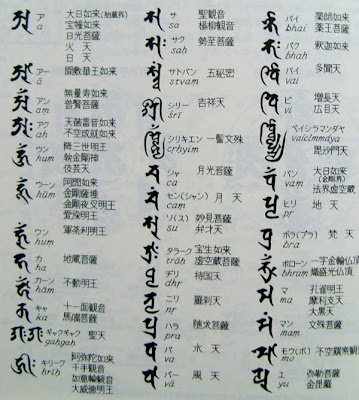 ア 大日如来(胎蔵界)
a 宝幢如来
日光菩薩
火天
日天
アー 開敷華王如来
ā
アン 無量寿如来
aṃ 普賢菩薩
アク 天鼓雷音如来
aḥ 不空成就如来
ウン 降三世明王
hum 執金剛神
伎芸天
ウーン 阿閦如来
hūm 金剛薩埵
金剛夜叉明王
愛染明王
ウン 軍荼利明王
hum
カ 地蔵菩薩
ha
カーン 不動明王
hām
キャ 十一面観音
ka
ギャクギャク 聖天
gaḥgaḥ
キリーク 阿弥陀如来
hrīḥ 千手観音
如意輪観音
大威徳明王
サ 聖観音
sa 楊柳観音
サク 勢至菩薩
saḥ
サトバン 五秘密
stvaṃ
シリー 吉祥天
śrī
シリキエン 一髻文殊
śrhyiṃ
シャ 月光菩薩
ca
セン(シャン) 月天
caṃ
ソ(ス) 妙見菩薩
su 弁才天
タラーク 宝生如来
trāḥ 虚空蔵菩薩
ヂリ 持国天
dhṛ
ニリ 羅刹天
nṛ
ハラ 随求菩薩
pra
バ 水天
va
バー 風天
vā
バイ 薬師如来
bhai 薬王菩薩
バク 釈迦如来
bhaḥ
バイ 多聞天
vai
ビ 増長天
vi 広目天
ベイシラマンダヤ
毘沙門天
バン 大日如来
vaṃ (金剛界)
法界虚空蔵
ヒリ 地天
pṛ
ボラ(ブラ) 梵天
bra
ボローン 一字金輪仏頂
bhruṃ 熾盛光仏頂
マ 孔雀明王
ma 摩利支天
大黒天
マン 文殊菩薩
maṃ
モウ(ボ) 不空羂索観音
mo
ユ 弥勒菩薩
yu 金毘羅